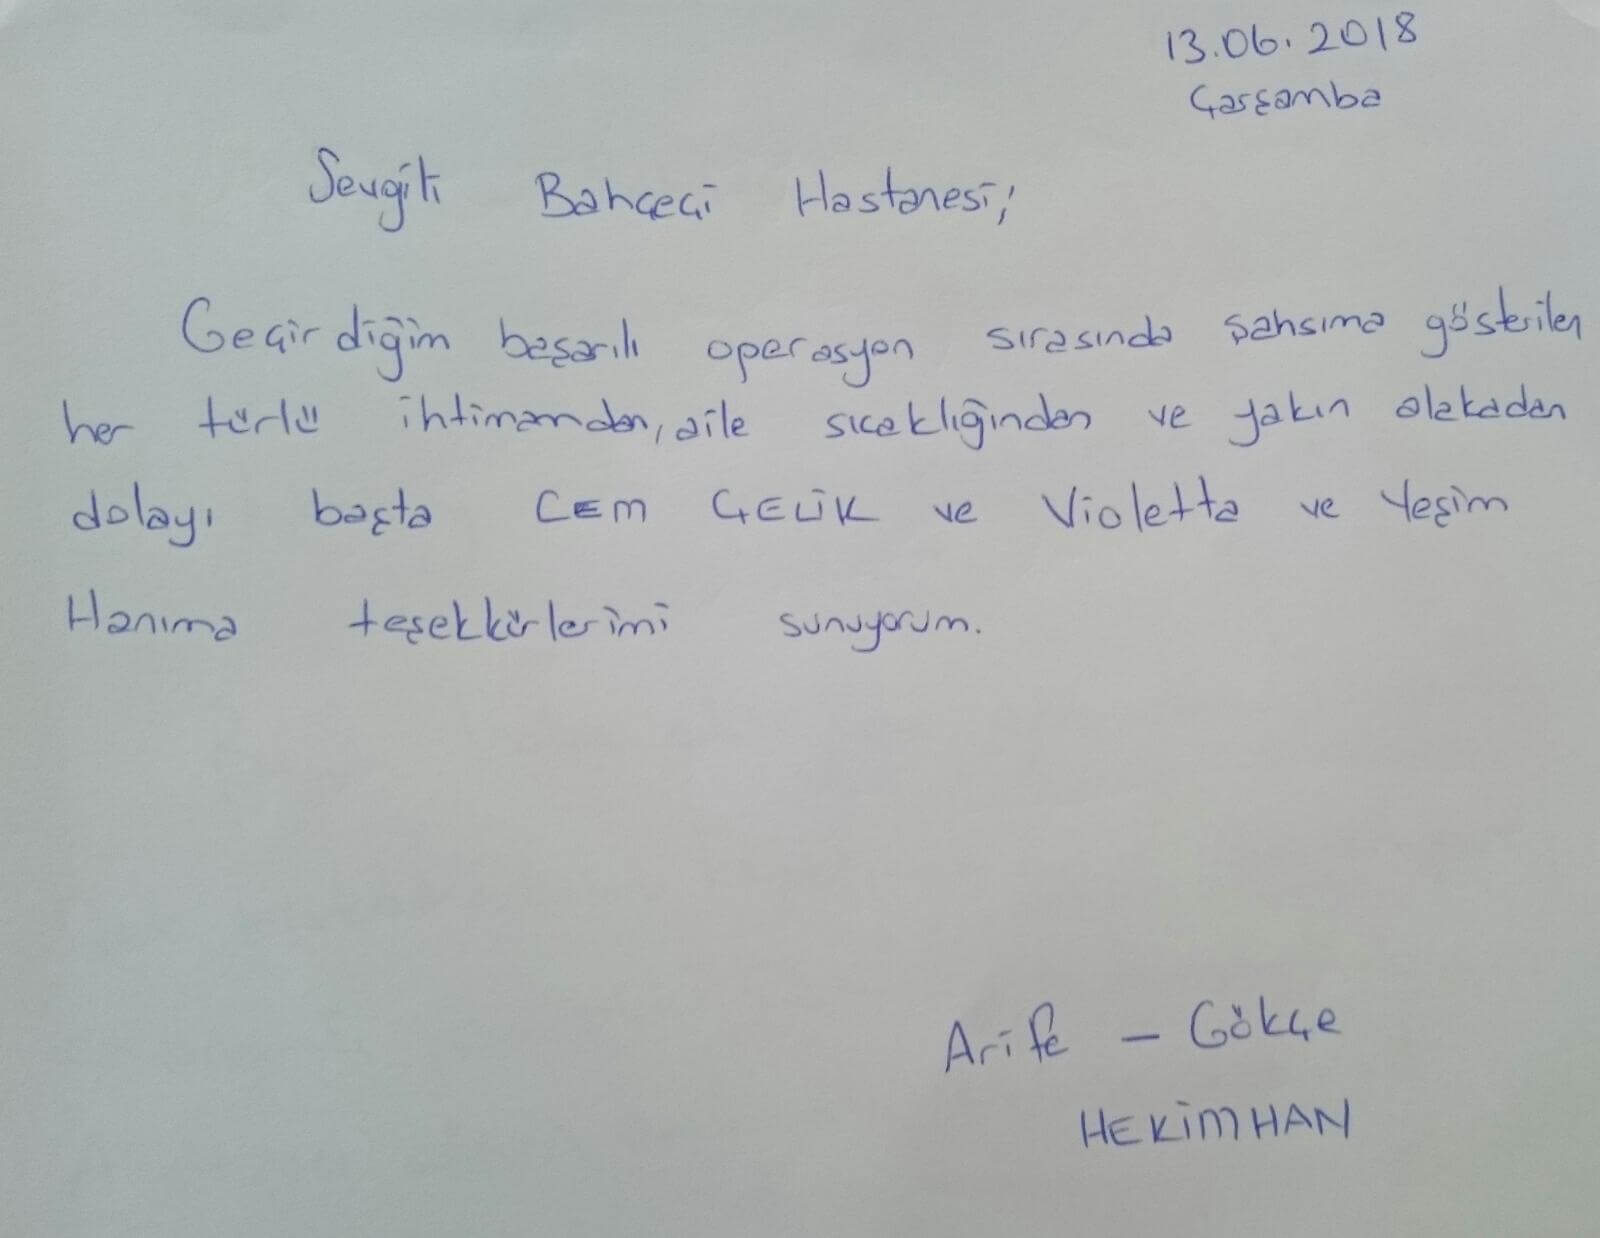 13.06.2018
Çarşamba
Sevgili Bahçeci Hastanesi;
Geçirdiğim başarılı operasyon sırasında şahsıma gösterilen
her türlü ihtimamdan, aile sıcaklığından ve yakın alakadan
dolayı başta CEM ÇELİK ve Violetta ve Yeşim
Hanıma teşekkürlerimi sunuyorum.
Arife - Gökçe
HEKİMHAN